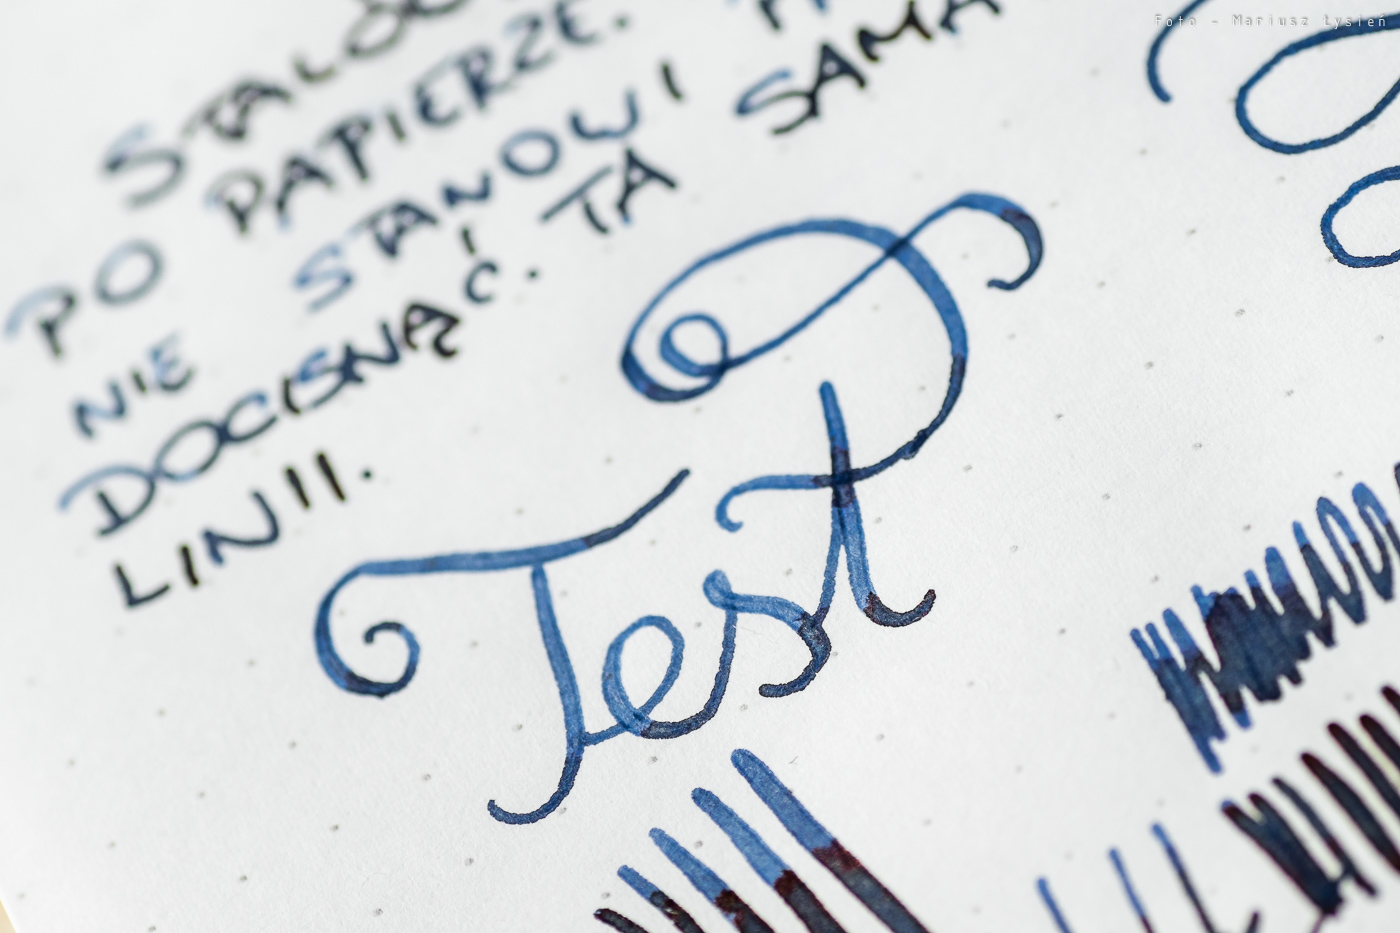 Foto - Mariusz Łysień
PO PAPIERZE.
NIE STANOWI
DOCISNĄĆ. TA SAMA
LINII.
Test